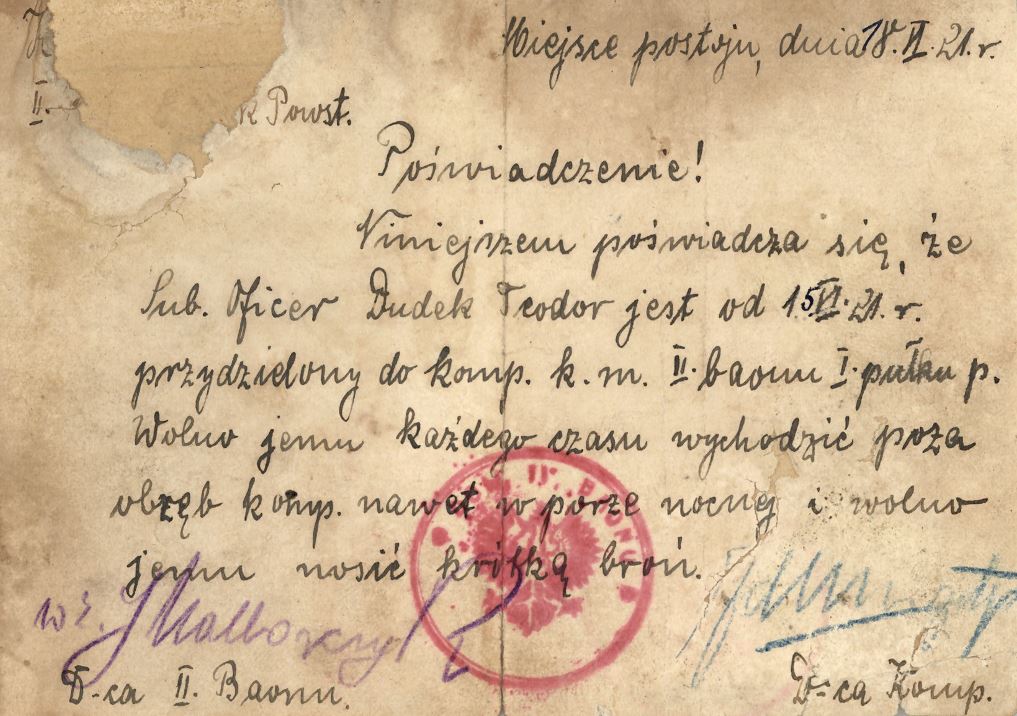 Miejsce postoju, dnia 18.VI.21.r.
II. k Powst.
Poświadczenie!
Niniejszem poświadcza się, że
Sub. Oficer Dudek Teodor jest od 15.VI.21.r.
przydzielony do komp. k.m. II. baonu I. pułku p.
Wolno jemu każdego czasu wychodzić poza
obręb komp. nawet w porze nocnej i wolno
jemu nosić krótką broń.
D-ca II. Baonu.
D-ca Komp.